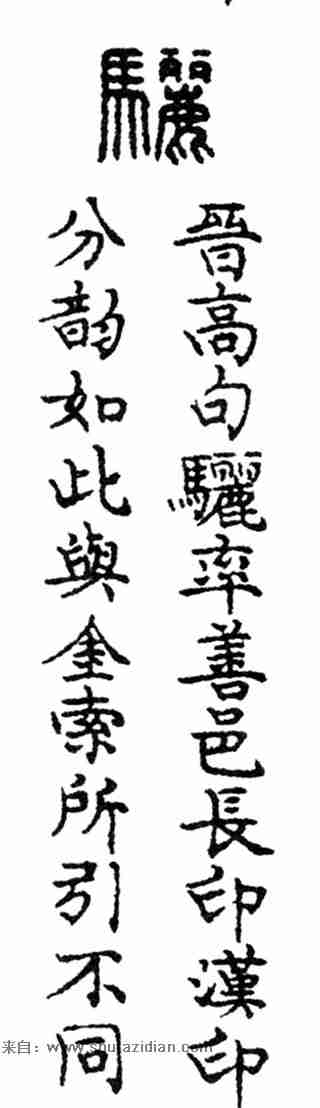 驪
晉高句驪率善邑長印漢印
分韵如此與金索所引不同
来自：www.shufazidian.com